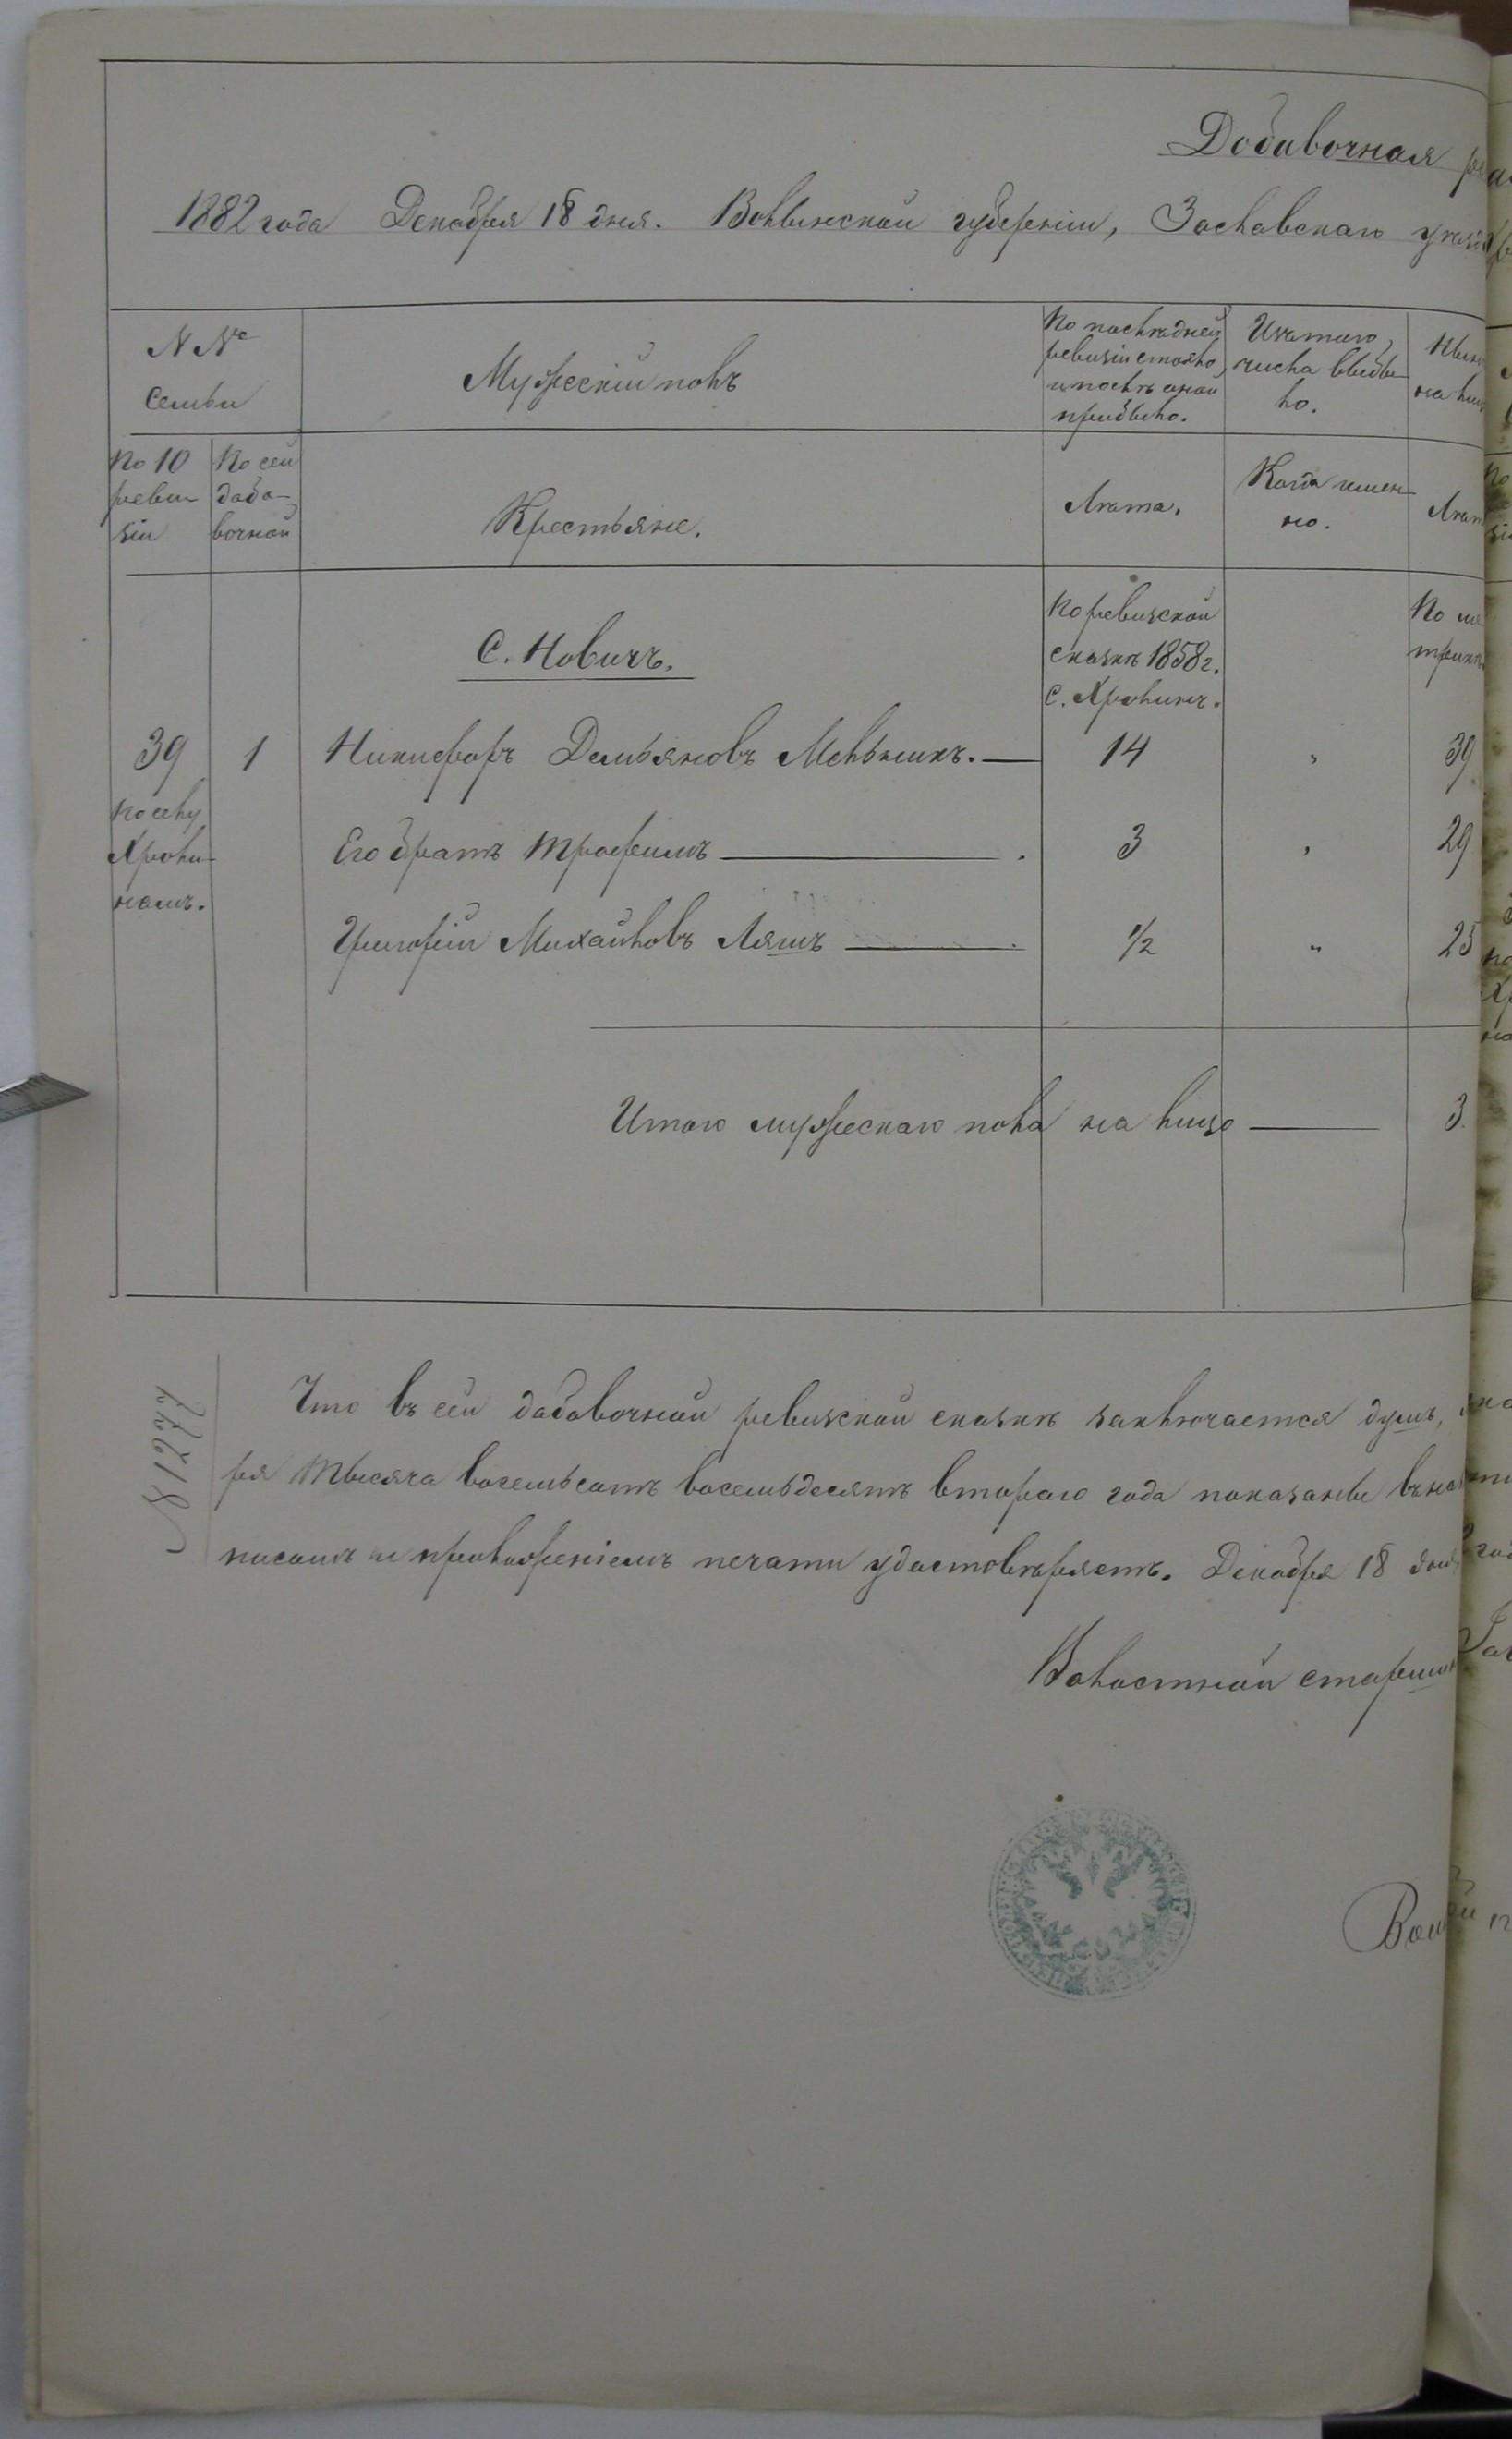 Добавочная
1882 года Декабря 18 дня. Волынской губерніи, Заславскаго уѣзда
N №
Семьи
Мужескій полъ
По послѣдней
ревизіи стояло
и послѣ оной
прибыло.
Изъ того
числа выбы-
ло.
Нын
на лиц
По 10
реви-
зіи
По сей
доба-
вочной
Крестьяне.
Лѣта.
Когда имен-
но.
Лѣт
С. Новичъ.
По ревизской
сказкѣ 1858 г.
С. Хролинъ.
По ме
трикѣ
39 1 Никифоръ Демьяновъ Мельникъ. — 14 " 39
По селу
Хроли-
намъ.
Его братъ Трофимъ — 3 " 29
Григорій Михайловъ Ляшъ — 1/2 " 25
Итого мужескаго пола на лицо — 3.
№ 1277
Что въ сей добавочной ревизской сказкѣ заключается душъ,
ря тысяча восемьсотъ восемьдесятъ второго года показаны въ на
писомъ и приложеніемъ печати удостовѣряетъ. Декабря 18 дня
Волостной старшин